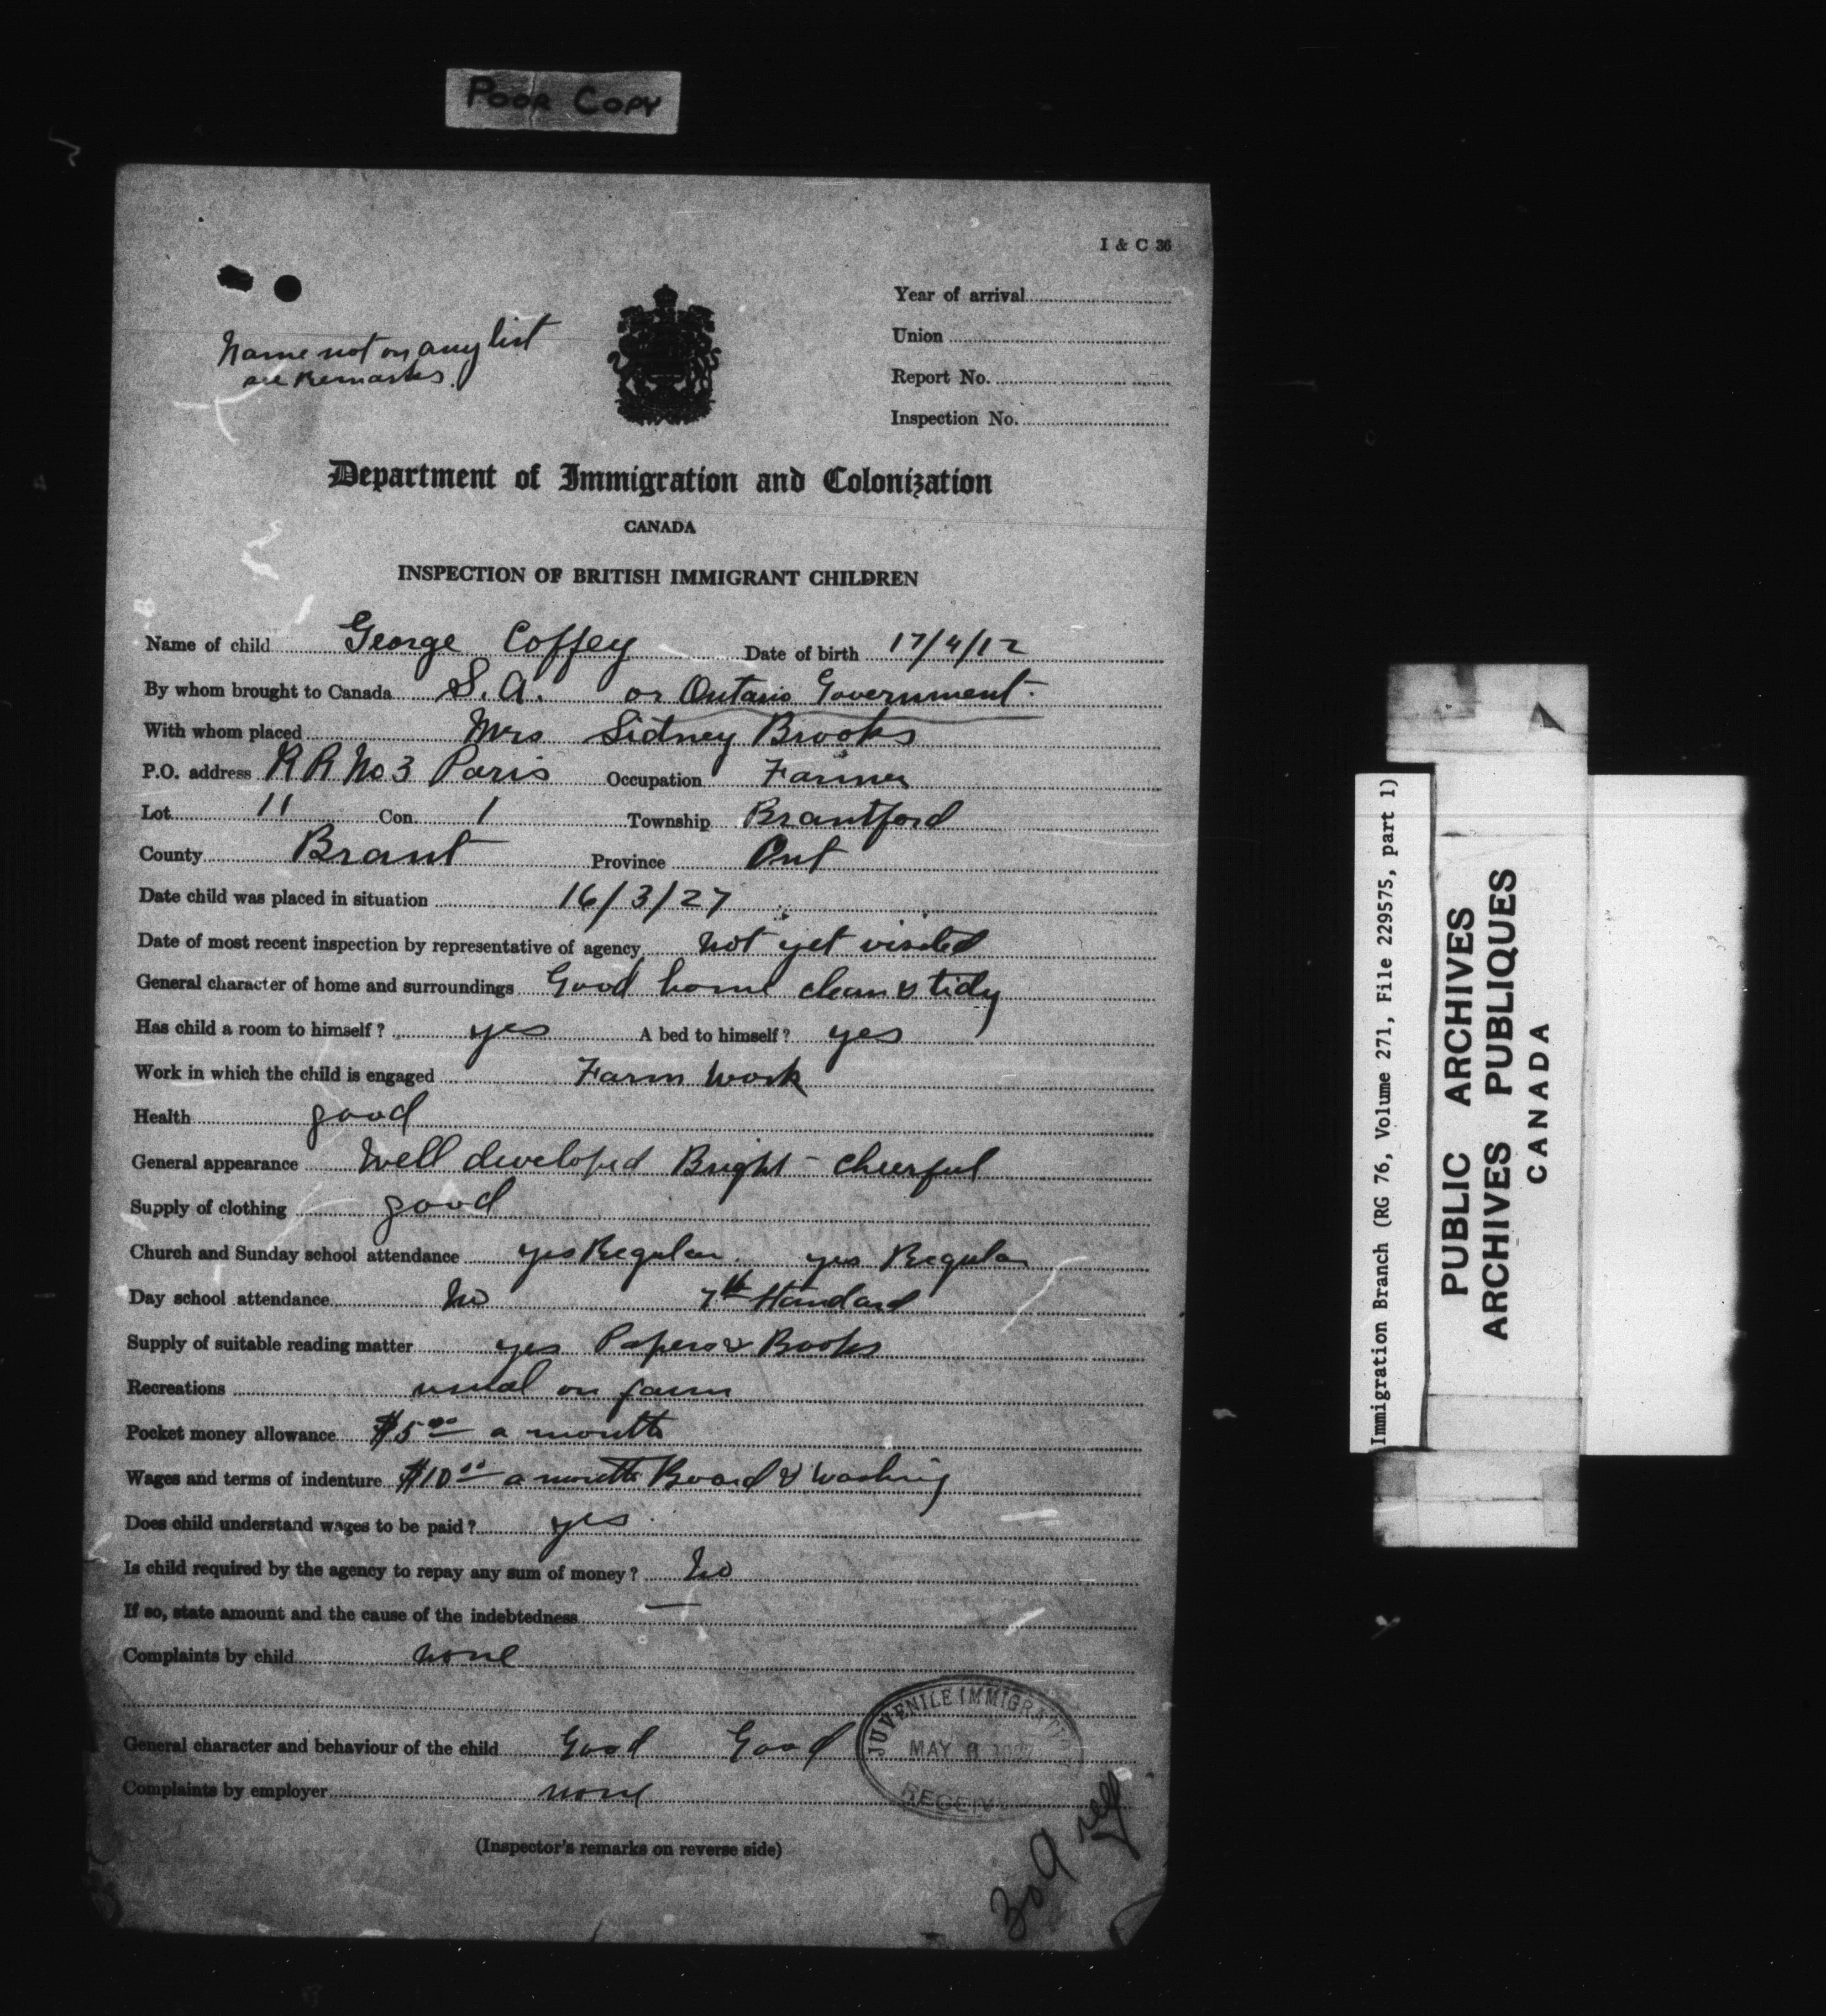 POOR COPY
I & C 36
Year of arrival
Union
Report No.
Inspection No.
Name not on any list
see Remarks.
Department of Immigration and Colonization
CANADA
INSPECTION OF BRITISH IMMIGRANT CHILDREN
Name of child George Coffey Date of birth 17/4/12
By whom brought to Canada S.A. or Ontario Government.
With whom placed Mrs Sidney Brooks
P.O. address R R No 3 Paris Occupation Farmer
Lot 11 Con 1 Township Brantford
County Brant Province Ont
Date child was placed in situation 16/3/27
Date of most recent inspection by representative of agency Not yet visited
General character of home and surroundings Good home clean & tidy
Has child a room to himself? yes A bed to himself? yes
Work in which the child is engaged Farm Work
Health good
General appearance Well developed Bright - cheerful
Supply of clothing good
Church and Sunday school attendance yes Regular yes Regular
Day school attendance No 7th Standard
Supply of suitable reading matter yes Papers & Books
Recreations usual on farm
Pocket money allowance $5.00 a month
Wages and terms of indenture $10.00 a month Board & Washing
Does child understand wages to be paid? yes
Is child required by the agency to repay any sum of money? No
If so, state amount and the cause of the indebtedness —
Complaints by child none
General character and behaviour of the child Good Good
Complaints by employer none
(Inspector's remarks on reverse side)
JUVENILE IMMIGRATIO
MAY
RECEIV
Immigration Branch (RG 76, Volume 271, File 229575, part 1)
PUBLIC ARCHIVES
ARCHIVES PUBLIQUES
CANADA